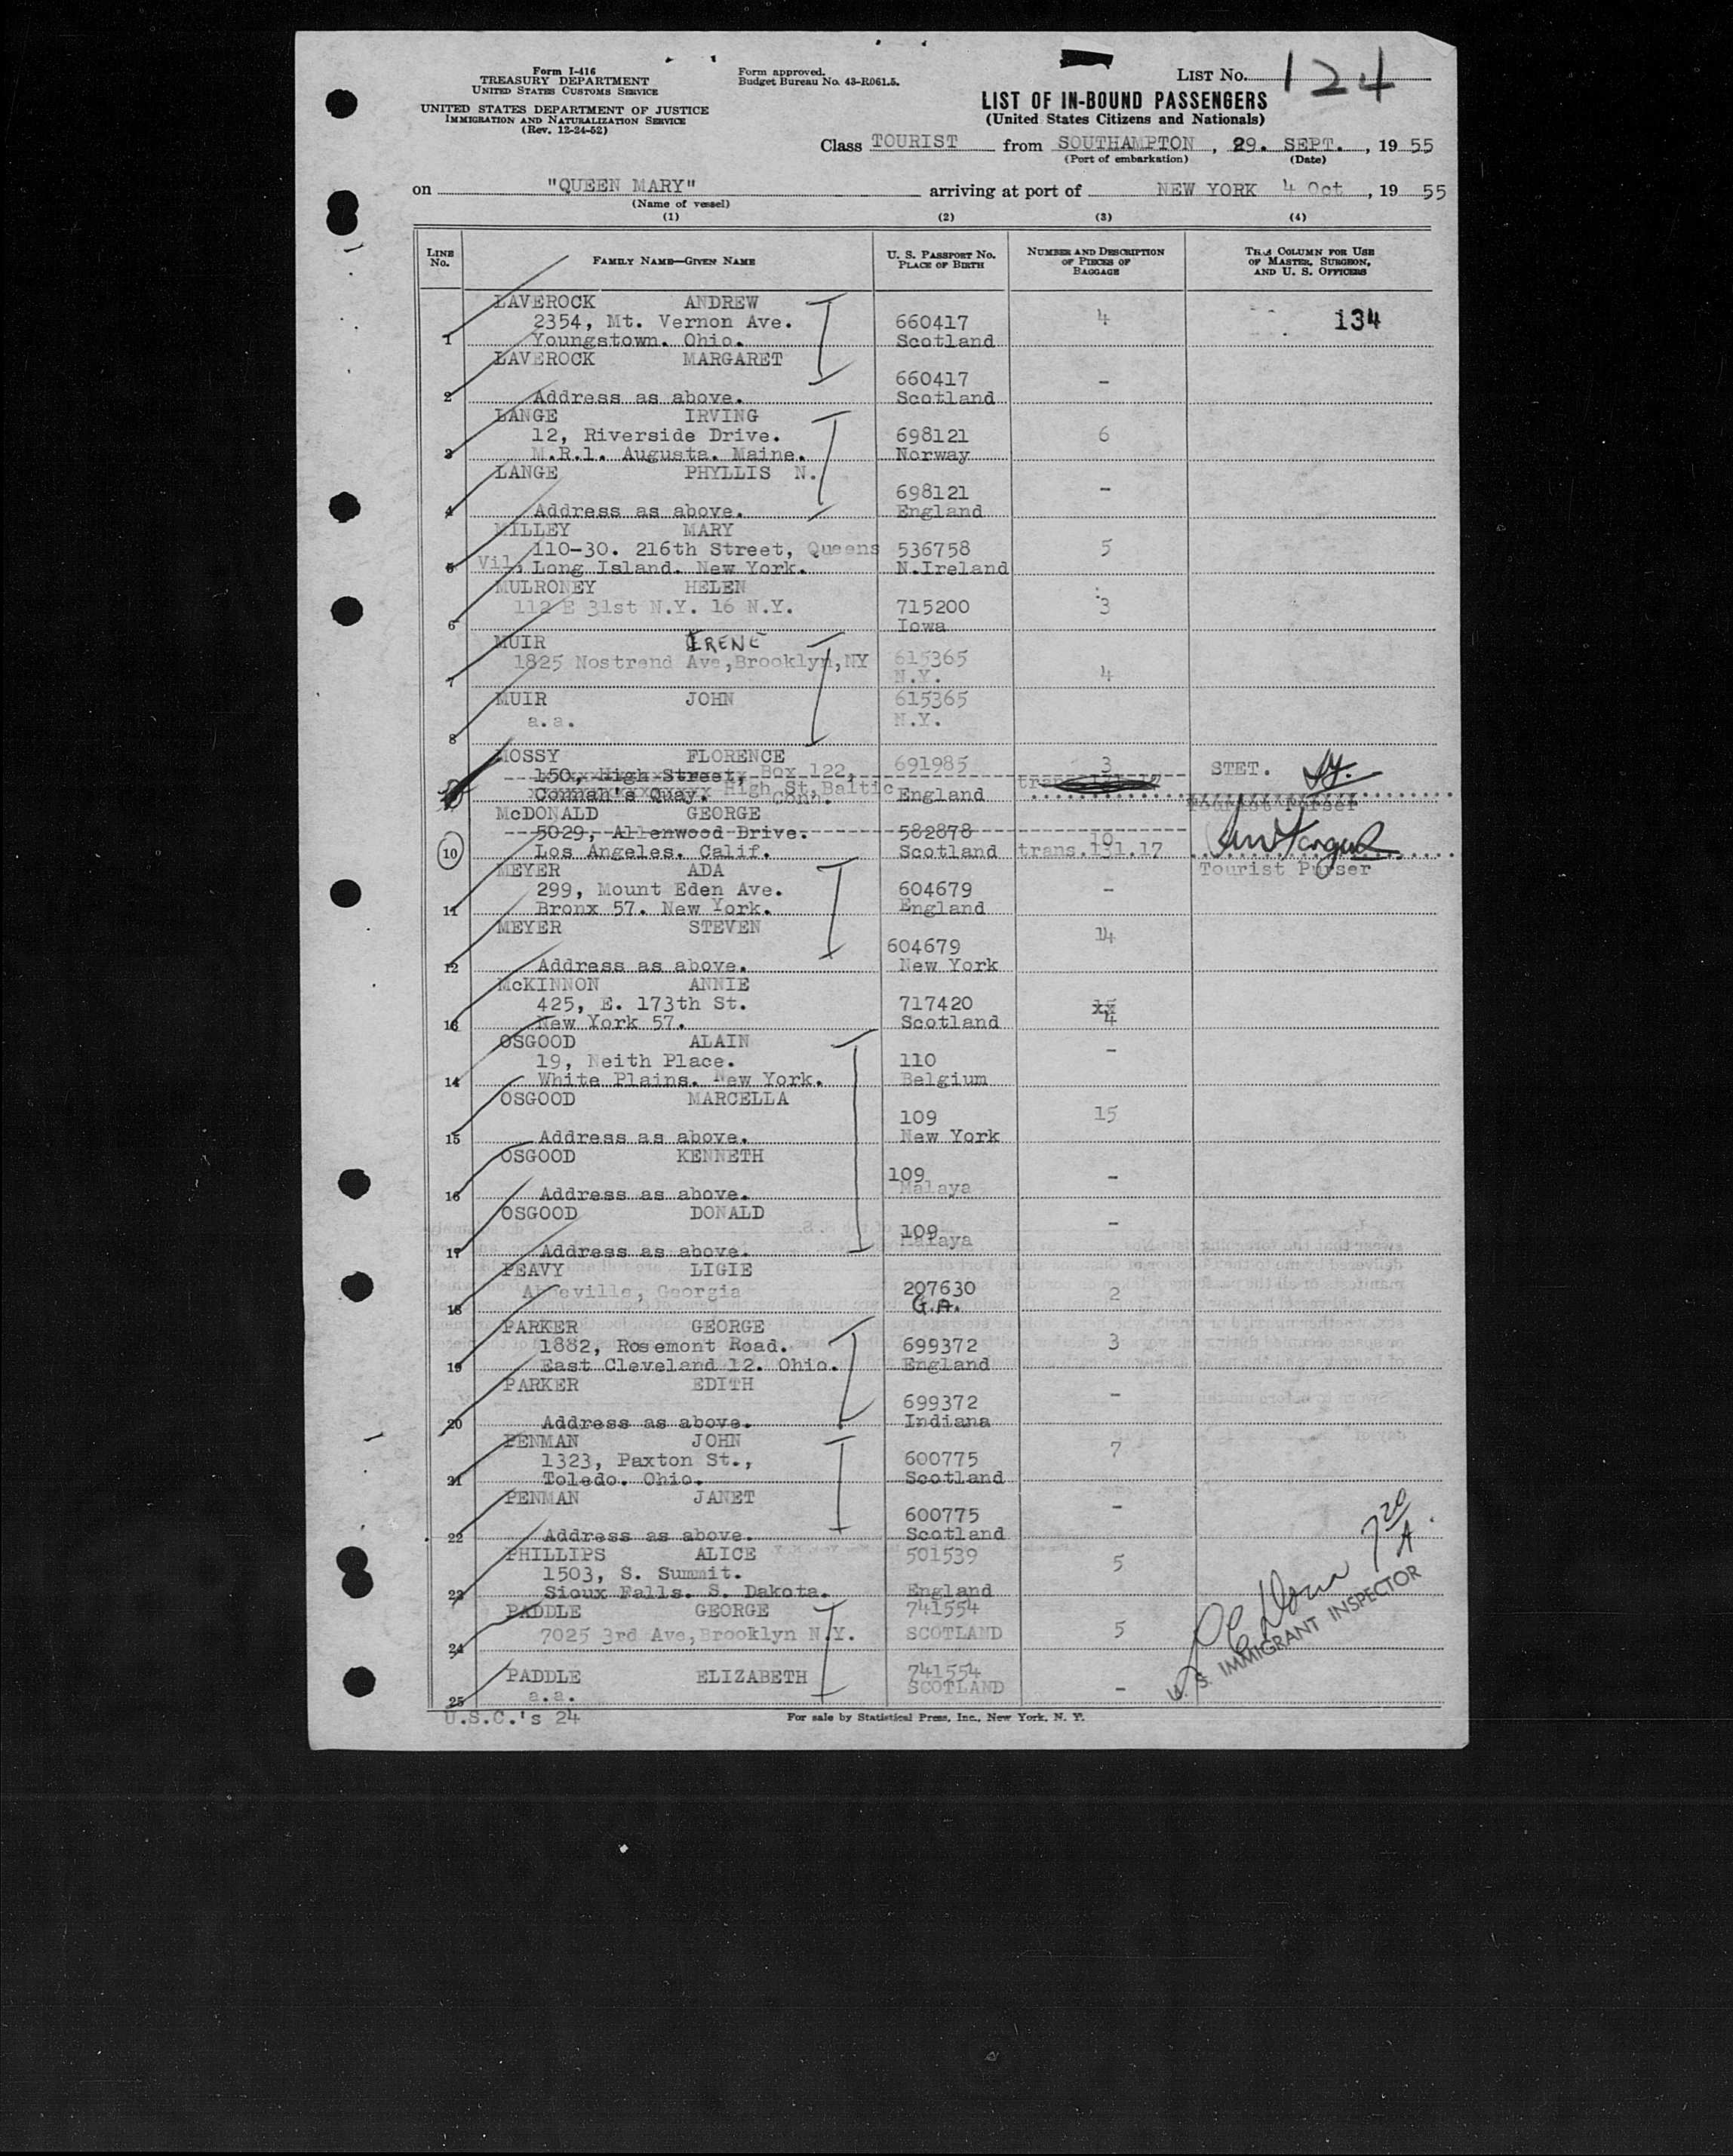 Form I-416
TREASURY DEPARTMENT
UNITED STATES CUSTOMS SERVICE
UNITED STATES DEPARTMENT OF JUSTICE
IMMIGRATION AND NATURALIZATION SERVICE
(Rev. 12-24-52)
Form approved.
Budget Bureau No. 43-R061.5.
LIST NO. 124
LIST OF IN-BOUND PASSENGERS
(United States Citizens and Nationals)
Class TOURIST from SOUTHAMPTON, 29. SEPT., 1955
(Port of embarkation) (Date)
on "QUEEN MARY" arriving at port of NEW YORK 4 Oct, 19 55
(Name of vessel)
(1) (2) (3) (4)
LINE No. FAMILY NAME—GIVEN NAME U. S. PASSPORT NO. PLACE OF BIRTH NUMBER AND DESCRIPTION OF PIECES OF BAGGAGE THIS COLUMN FOR USE OF MASTER, SURGEON, AND U. S. OFFICERS
LAVEROCK ANDREW
2354, Mt. Vernon Ave. 660417 4 134
1 Youngstown. Ohio. Scotland
LAVEROCK MARGARET
660417 -
2 Address as above. Scotland
LANGE IRVING
12, Riverside Drive. 698121 6
3 M.R.1. Augusta. Maine. Norway
LANGE PHYLLIS N.
698121 -
4 Address as above. England
MILLEY MARY
110-30. 216th Street, Queens 536758 5
5 Vil. Long Island. New York. N.Ireland
MULRONEY HELEN
112 E 31st N.Y. 16 N.Y. 715200 3
6 Iowa
MUIR IRENE
1825 Nostrend Ave,Brooklyn,NY 615365
7 N.Y. 4
MUIR JOHN 615365
a.a. N.Y.
8
MOSSY FLORENCE 691985 3
150, High Street, Box 122, STET.
Connah's Quay. High St,Baltic Conn. England
Tourist Purser
McDONALD GEORGE
5029, Allenwood Drive. 582878 10
10 Los Angeles. Calif. Scotland trans.131.17
Tourist Purser
MEYER ADA
299, Mount Eden Ave. 604679 -
11 Bronx 57. New York. England
MEYER STEVEN
604679 14
12 Address as above. New York
McKINNON ANNIE
425, E. 173th St. 717420
13 New York 57. Scotland 4
OSGOOD ALAIN
19, Neith Place. 110 -
14 White Plains. New York. Belgium
OSGOOD MARCELLA
109 15
15 Address as above. New York
OSGOOD KENNETH
109 -
16 Address as above. Malaya
OSGOOD DONALD
109 -
17 Address as above. Malaya
PEAVY LIGIE
Georgia 207630 2
18 G.A.
PARKER GEORGE
1882, Rosemont Road. 699372 3
19 East Cleveland 12. Ohio. England
PARKER EDITH
699372 -
20 Address as above. Indiana
PENMAN JOHN
1323, Paxton St., 600775 7
21 Toledo. Ohio. Scotland
PENMAN JANET
600775 -
22 Address as above. Scotland
PHILLIPS ALICE 501539
1503, S. Summit. 5
23 Sioux Falls. S. Dakota. England
PADDLE GEORGE 741554
7025 3rd Ave,Brooklyn N.Y. SCOTLAND 5
24
PADDLE ELIZABETH 741554
25 a.a. SCOTLAND -
U. S. IMMIGRANT INSPECTOR
U.S.C.'s 24
For sale by Statistical Press, Inc., New York, N. Y.